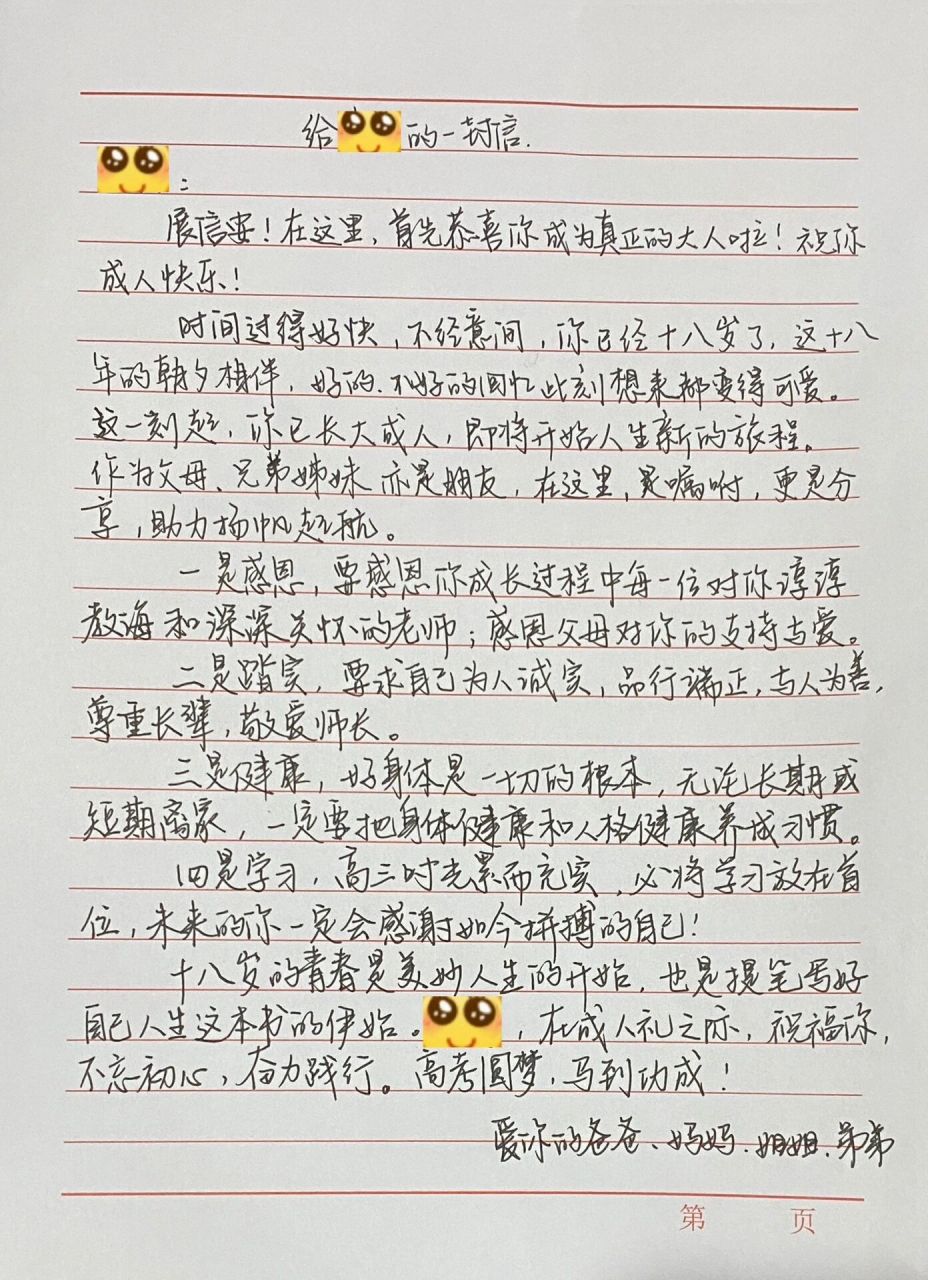 给的一封信.
:
展信安！在这里，首先恭喜你成为真正的大人啦！祝你
成人快乐！
时间过得好快，不经意间，你已经十八岁了，这十八
年的朝夕相伴，好的、不好的回忆此刻想来都变得可爱。
这一刻起，你已长大成人，即将开始人生新的旅程。
作为父母、兄弟姊妹亦是朋友，在这里，是嘱咐，更是分
享，助力扬帆起航。
一是感恩，要感恩你成长过程中每一位对你谆谆
教海和深深关怀的老师；感恩父母对你的支持与爱。
二是踏实，要求自己为人诚实，品行端正，与人为善，
尊重长辈，敬爱师长。
三是健康，好身体是一切的根本，无论长期或
短期离家，一定要把身体健康和人格健康养成习惯。
四是学习，高三时光累而充实，必将学习放在首
位，未来的你一定会感谢如今拼搏的自己！
十八岁的青春是美妙人生的开始，也是提笔写好
自己人生这本书的伊始。，在成人礼之际，祝福你，
不忘初心，奋力践行。高考圆梦，马到功成！
爱你的爸爸、妈妈、姐姐、弟弟
第 页